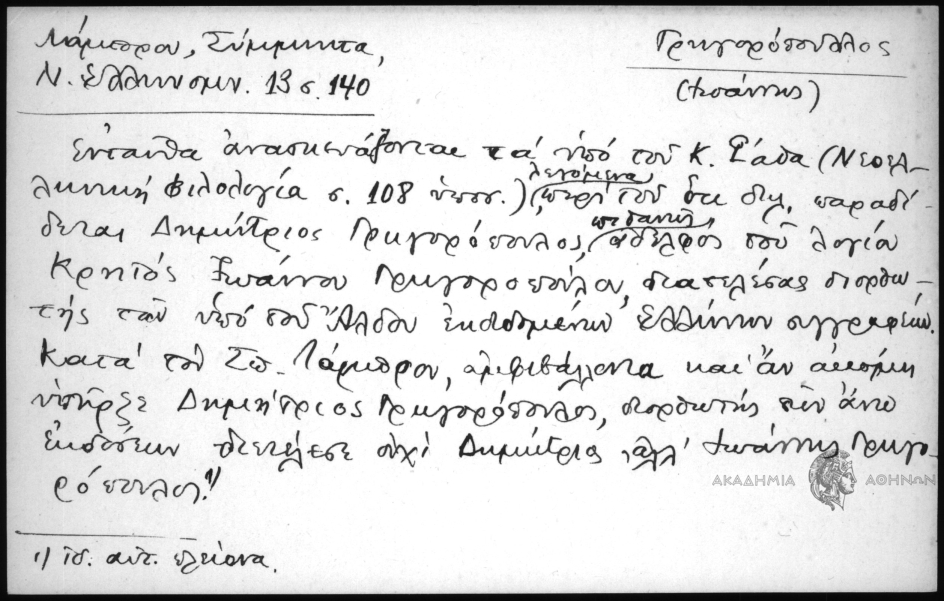 Λάμπρου, Σύμμικτα,
Ν. Ἑλληνομν. 13 σ. 140
Γρηγορόπουλος
(Ἰωάννης)
Ἐνταῦθα ἀνασκευάζονται τὰ ὑπὸ τοῦ Κ. Σάθα (Νεοελ-
ληνικὴ Φιλολογία σ. 108 ) λεγόμενα περὶ τοῦ ὅτι δῆλ. παραδί-
δεται Δημήτριος Γρηγορόπουλος, πιθανῶς ἀδελφὸς τοῦ λογίου
Κρητὸς Ἰωάννου Γρηγοροπούλου, διατελέσας διορθω-
τὴς τῶν ὑπὸ τοῦ Ἄλδου ἐκδιδομένων Ἑλλήνων συγγραφέων.
Κατὰ τὸν Σπ. Λάμπρον, ἀμφιβάλλοντα καὶ ἂν ἀκόμη
ὑπῆρξε Δημήτριος Γρηγορόπουλος, διορθωτὴς τῶν ἄνω
ἐκδόσεων διετέλεσε οὐχὶ Δημήτριος, ἀλλ' Ἰωάννης Γρηγο-
ρόπουλος.1)
ΑΚΑΔΗΜΙΑ ΑΘΗΝΩΝ
1) Ἰδ. αὐτ. πλείονα.